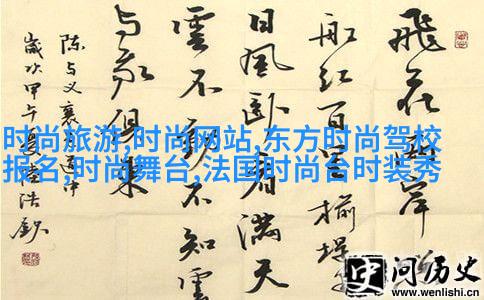 飛花兩岸
船红百里榆堤
日風卧看滿天
雲不動不知雲
与我俱東
陈与义襄邑道中
歲次甲午夏陸浩
时尚旅游,时尚网站,东方时尚驾校
报名,时尚舞台,法国时尚台时装秀
问历史
www.wenlishi.cn